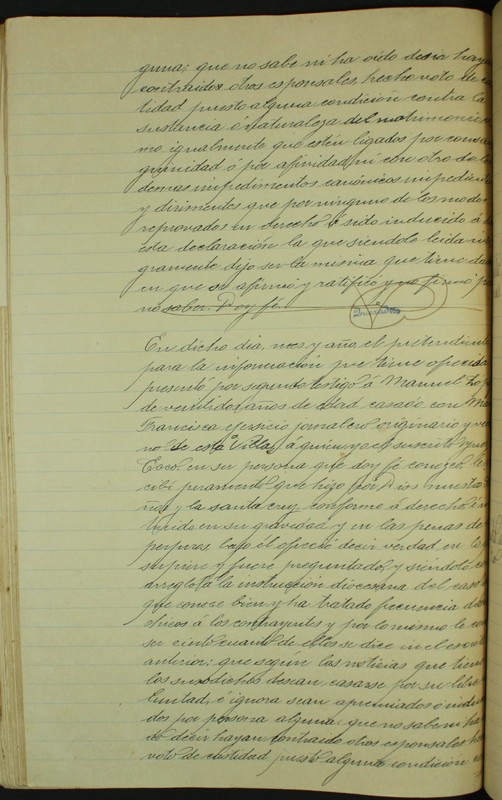 guna; que no sabe ni ha oido decir haya
contraidos otros esponsales, hecho voto de cas
tidad puesto alguna condición contra la
sustancia ó naturaleza del matrimonio, co
mo igualmente que estén ligados por consan
guinidad ó por afinidad, ni con otro de los
demas impedimentos canónicos impedient
y dirimentes, que por ninguno de los modos
reprovados en derecho á sido inducido á
esta declaración la que siendole leida in
gramente dijo ser la misma que tiene dada
en que se afirmó y ratificó y no firmó p
no saber. Doy fé.
En dicho dia, mes y año, el pretendiente
para la información que tiene ofrecida
presentó por segundo testigo á Manuel
de veintidos años de edad casado con
Francisca egersicio jornalero originario y veci
no de esta Villa, á quien yo el suscrito
Ecco. en su persona que doy fé conozco, le
cibí juramento que hizo por Dios nuestro
ñor y la santa cruz conforme á derecho,
truido en su gravedad y en las penas de
perjuros, bajo él ofreció decir verdad en lo
supiere y fuere preguntado, y siendolo
arreglo á la instrucción diocesana del caso
que conoce bien y ha tratado frecuencia de
chicos á los contrayentes y por lo mismo le
ser cierto cuanto de ellos se dice en el escrito
anterior; que según las noticias que tiene
los susodichos desean casarse por su libre
luntad, é ignora sean apremiados ó induci
dos por persona alguna; que no sabe ni ha
do decir hayan contraido otros esponsales
voto de castidad, puesto alguna condición